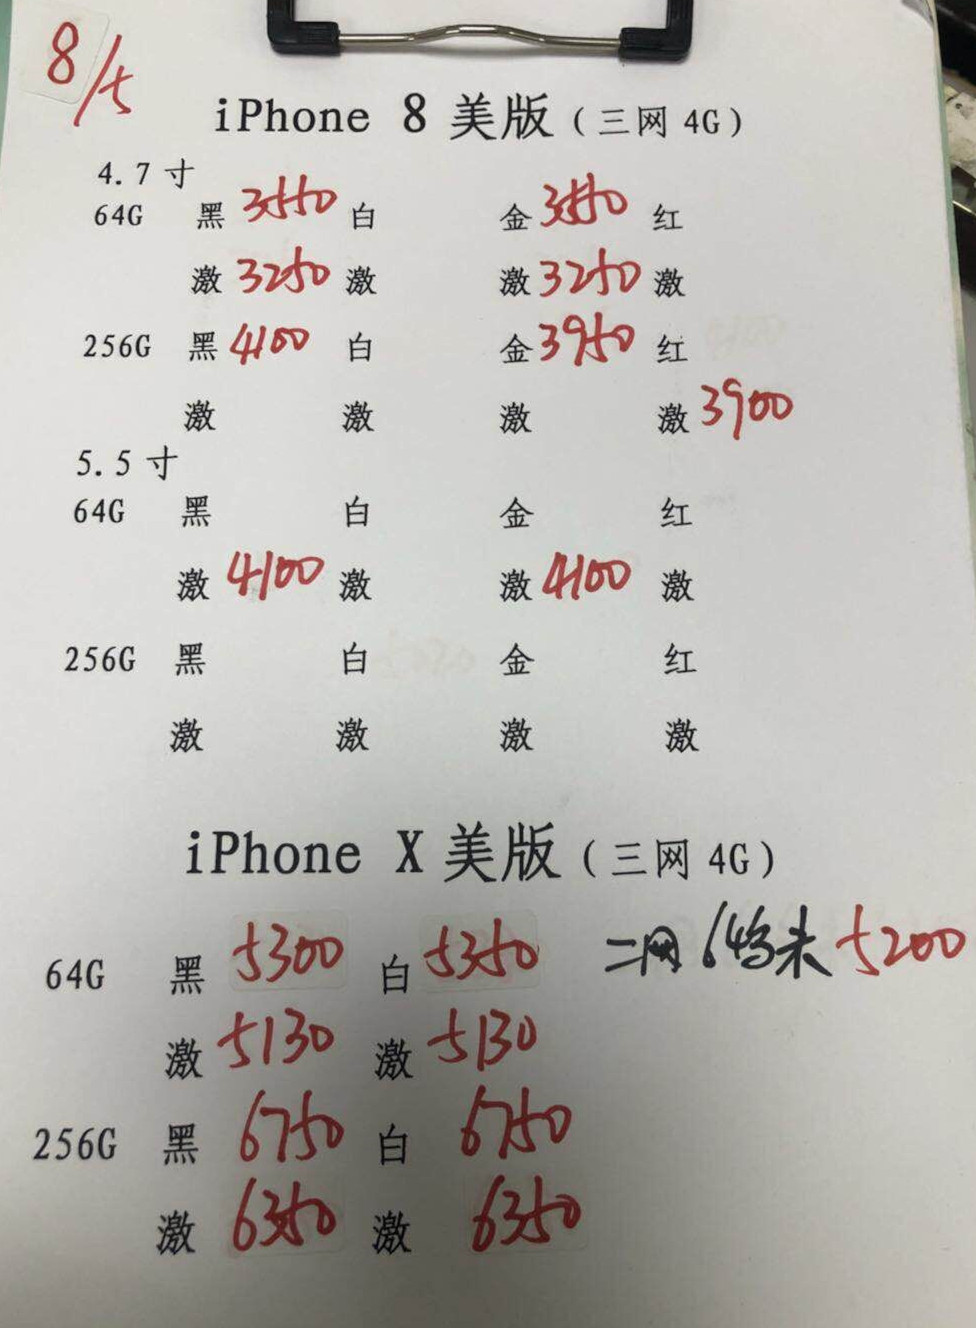 8/5
iPhone 8 美版（三网 4G）
4.7 寸
64G 黑 3550 白 金 3550 红
激 3250 激 激 3250 激
256G 黑 4100 白 金 3950 红
激 激 激 激 3900
5.5 寸
64G 黑 白 金 红
激 4100 激 激 4100 激
256G 黑 白 金 红
激 激 激 激
iPhone X 美版（三网 4G）
64G 黑 5300 白 5350 二网 64 未 5200
激 5130 激 5130
256G 黑 6750 白 6750
激 6350 激 6350